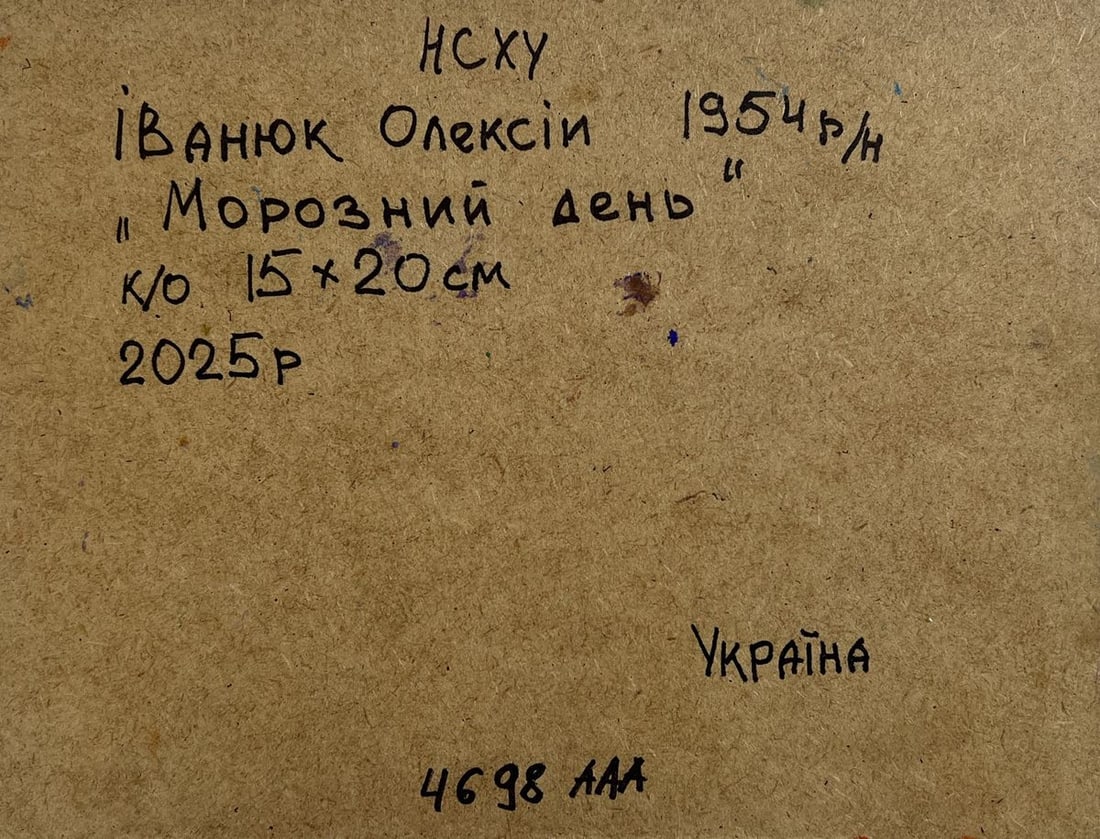 НСХУ
Іванюк Олексіи 1954 р/н
„Морозний день“
к/о 15×20 см
2025р
Україна
4698 ААА